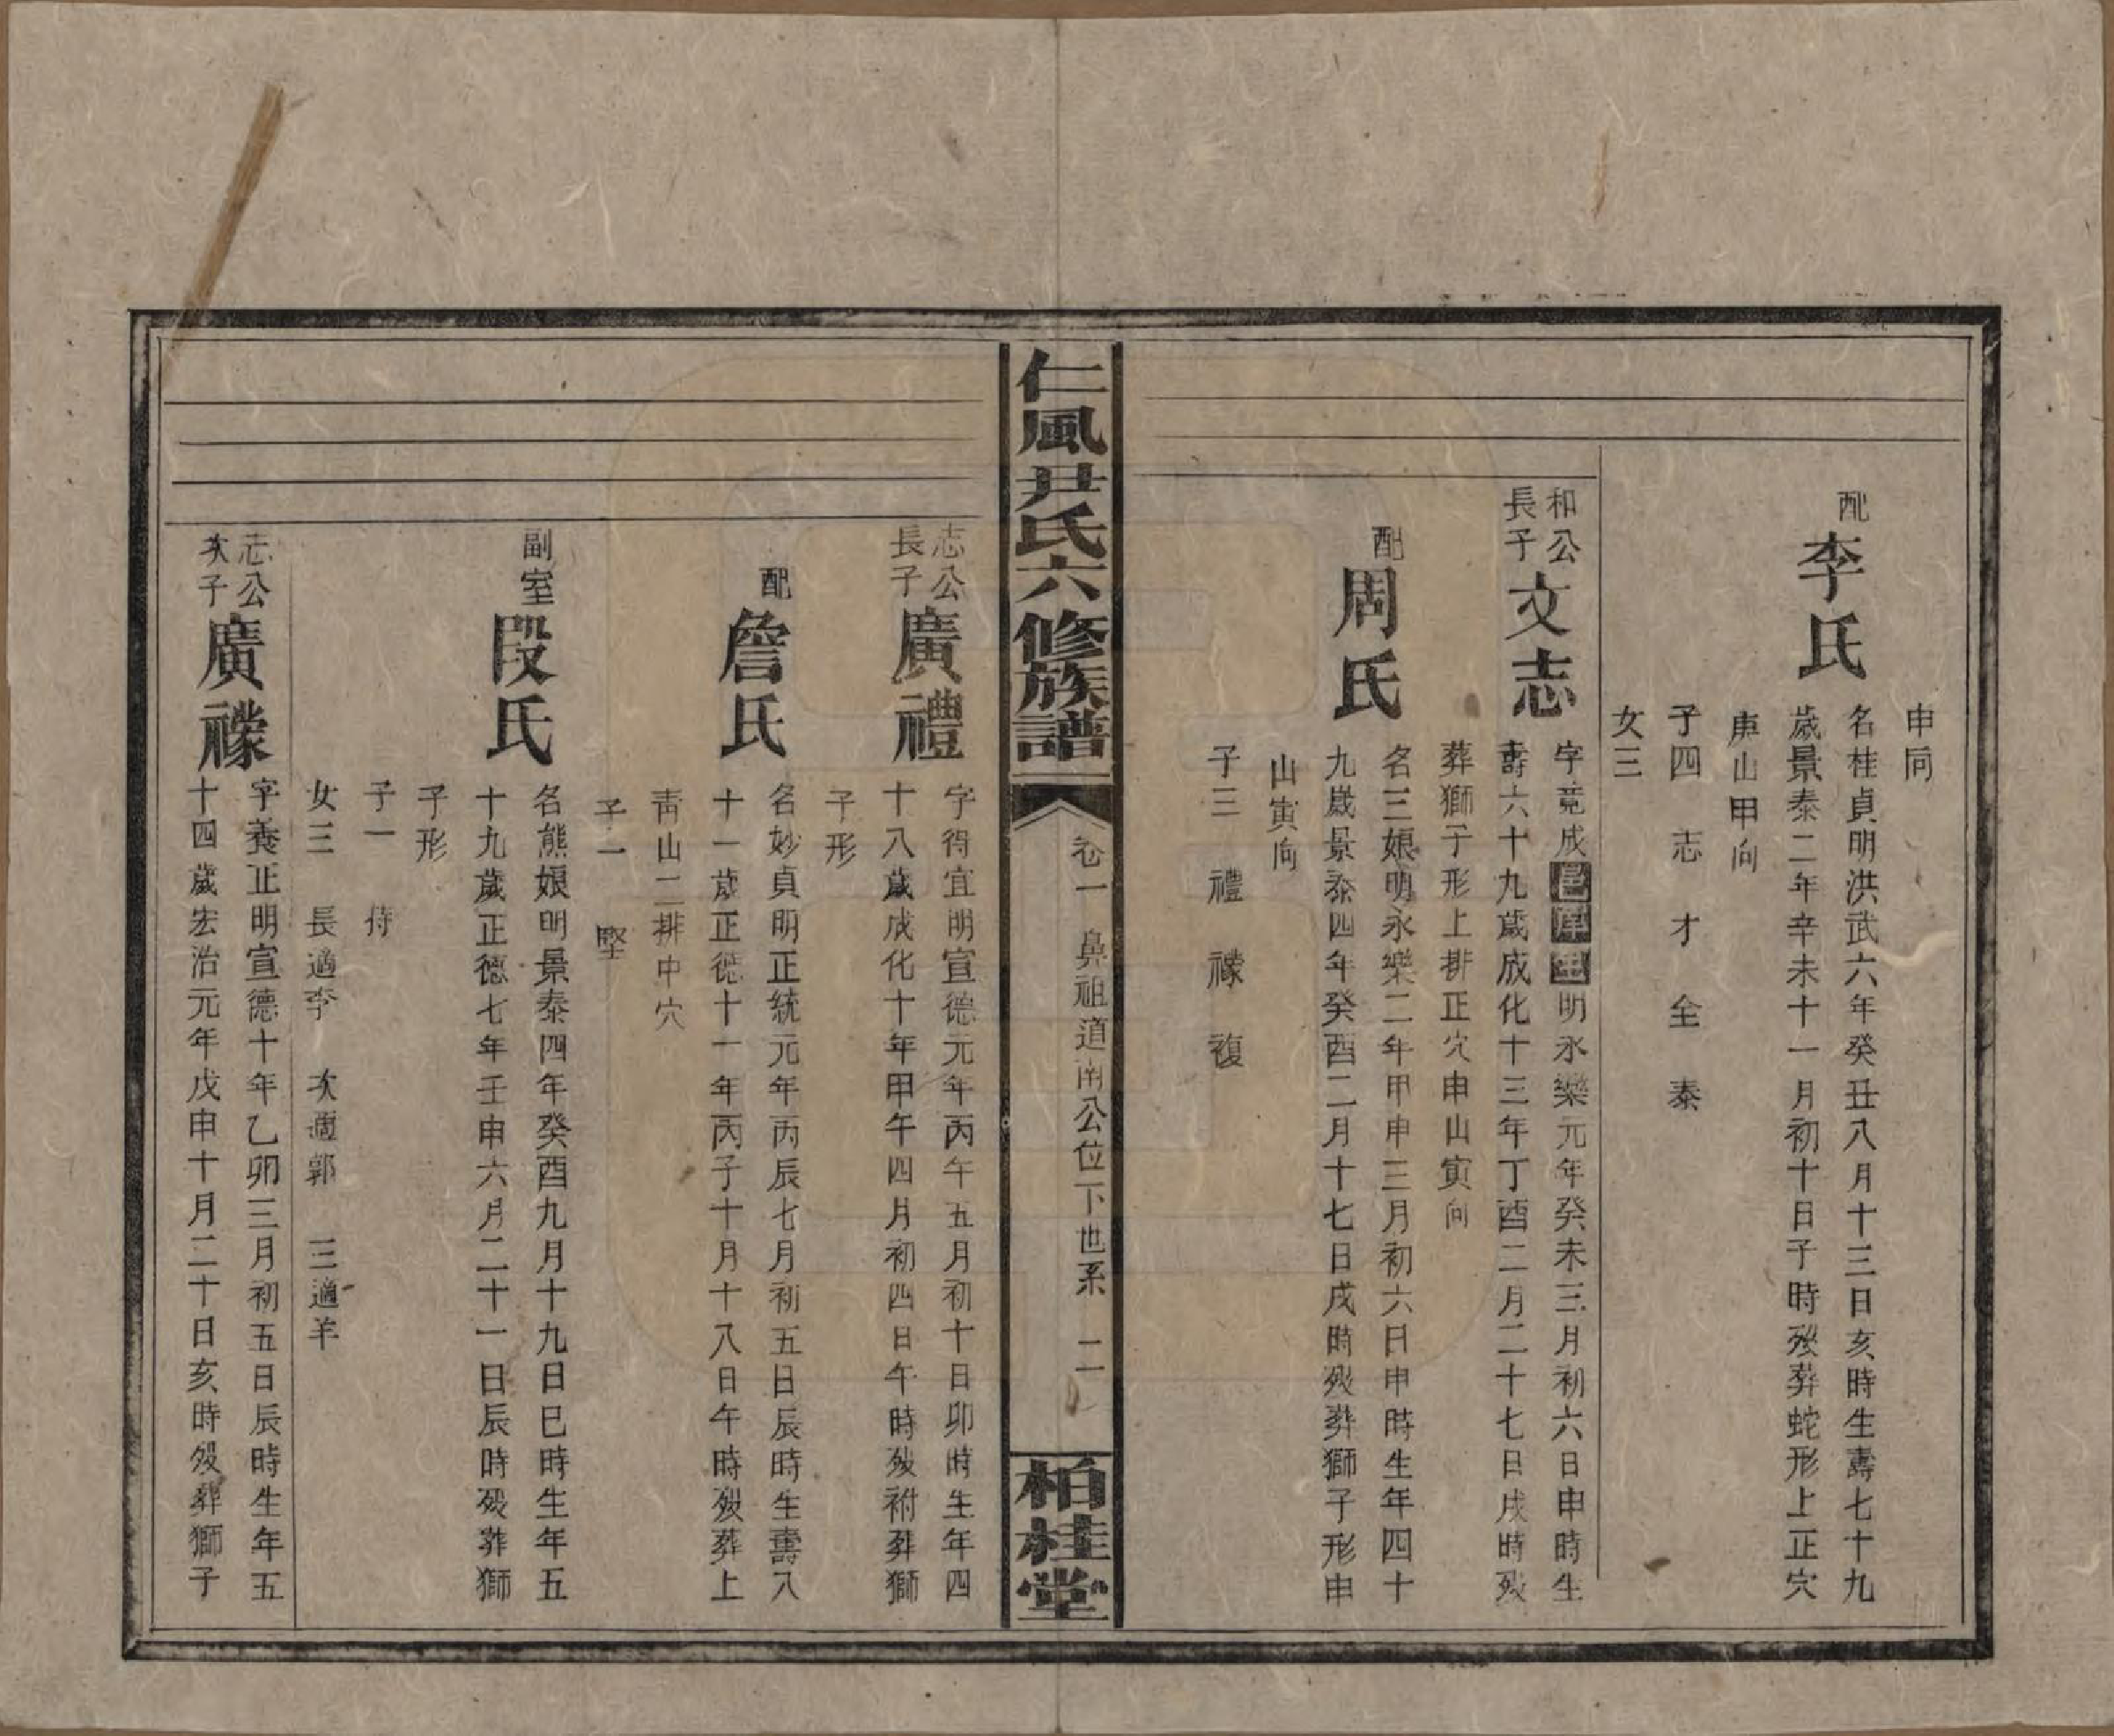 申向
配李氏
名桂貞明洪武六年癸丑八月十三日亥時生壽七十九
歲景泰二年辛未十一月初十日子時歿葬蛇形上正穴
庚山甲向
子四 志 才 全 泰
女三
和公長子文志
字竟成邑庠生明永樂元年癸未三月初六日申時生
壽六十九歲成化十三年丁酉二月二十七日戌時歿
葬獅子形上排正穴申山寅向
配周氏
名三娘明永樂二年甲申三月初六日申時生年四十
九歲景泰四年癸酉二月十七日戌時歿葬獅子形申
山寅向
子三 禮 祿 複
仁風尹氏六修族譜
卷一 鼻祖道南公位下世系 二
柏桂堂
志公長子廣禮
字得宜明宣德元年丙午五月初十日卯時生年四
十八歲成化十年甲午四月初四日午時歿祔葬獅
子形
配詹氏
名妙貞明正統元年丙辰七月初五日辰時生壽八
十一歲正德十一年丙子十月十八日午時歿葬上
靑山二排中穴
子一 堅
副室段氏
名熊娘明景泰四年癸酉九月十九日巳時生年五
十九歲正德七年壬申六月二十一日辰時歿葬獅
子形
子一 侍
女三 長適李 次適郭 三適羊
志公次子廣祿
字養正明宣德十年乙卯三月初五日辰時生年五
十四歲宏治元年戊申十月二十日亥時歿葬獅子